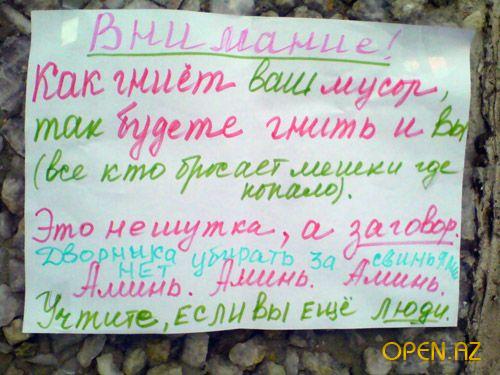 Внимание!
Как гниёт ваш мусор,
так будете гнить и вы
(все кто бросает мешки где
попало).
Это не шутка, а заговор.
Дворныка убирать за свиньями
НЕТ
Аминь. Аминь. Аминь.
Учтите, если вы ещё люди.
OPEN.AZ